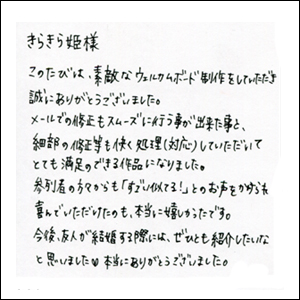 きらきら姫様
このたびは、素敵なウェルカムボード制作をしていただき
誠にありがとうございました。
メールでの修正もスムーズに行う事が出来た事と、
細部の修正等も快く処理(対応)していただいて
とても満足のできる作品になりました。
参列者の方々からも「すごい似てる!」とのお声をかけられ
喜んでいただけたのも、本当に嬉しかったです。
今後、友人が結婚する際には、ぜひとも紹介したいな
と思いました 本当にありがとうございました。